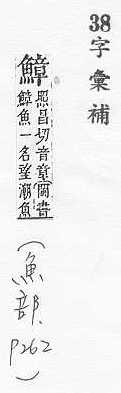 38字彙補
鱆
照昌切音章閩書
鱆魚一名望潮魚
(魚部. P262)